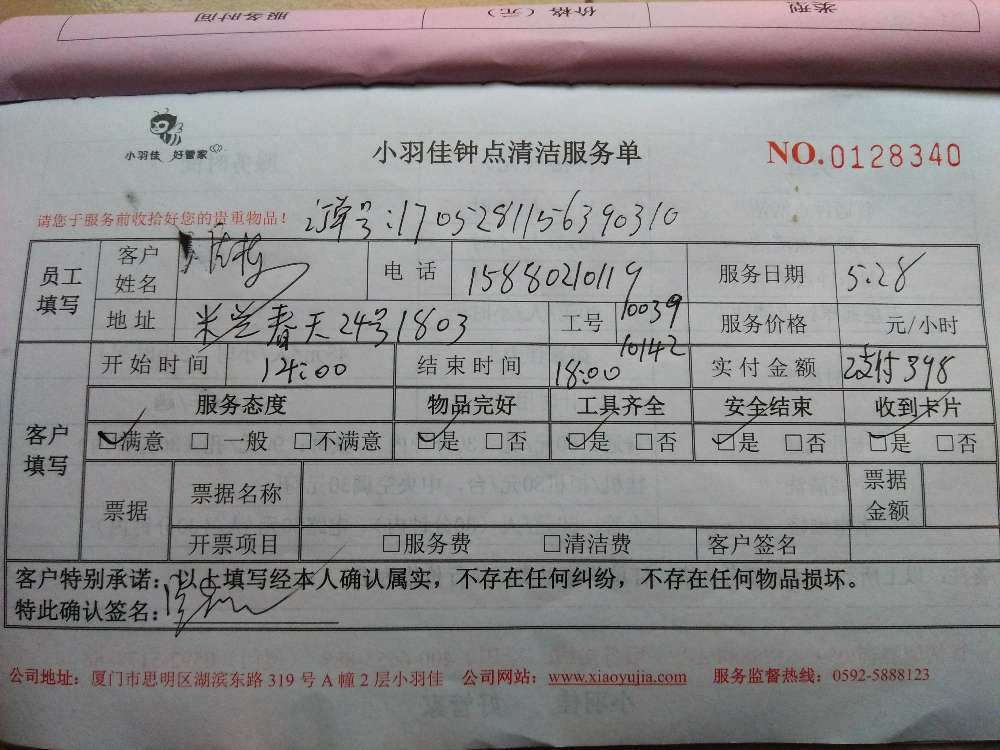 服务时间 价格（元） 类型
小羽佳 好管家
小羽佳钟点清洁服务单
NO.0128340
请您于服务前收拾好您的贵重物品！
订单号:1705281156390310
员工填写 客户姓名 电话 15880210119 服务日期 5.28
地址 米兰春天24号1803 工号 10039 10142 服务价格 元/小时
客户填写 开始时间 14:00 结束时间 18:00 实付金额 支付398
服务态度 物品完好 工具齐全 安全结束 收到卡片
☑满意 □一般 □不满意 ☑是 □否 ☑是 □否 ☑是 □否 ☑是 □否
票据 票据名称 票据金额
开票项目 □服务费 □清洁费 客户签名
客户特别承诺：以上填写经本人确认属实，不存在任何纠纷，不存在任何物品损坏。
特此确认签名：
公司地址：厦门市思明区湖滨东路 319 号 A 幢 2 层小羽佳 公司网站：www.xiaoyujia.com 服务监督热线：0592-5888123